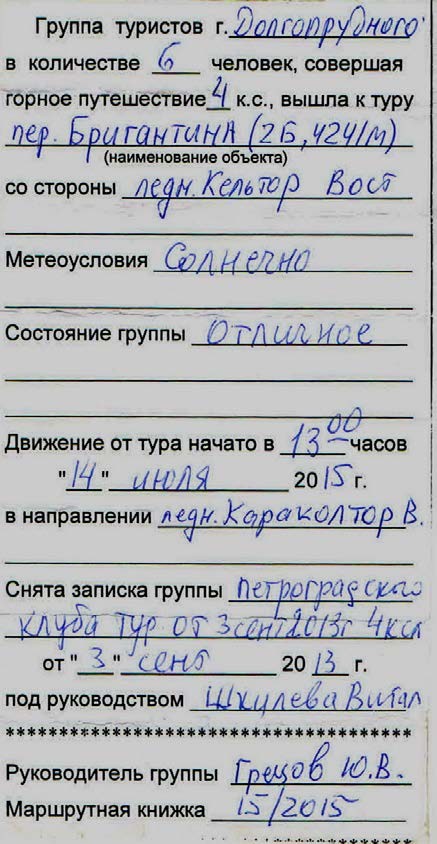 Группа туристов г. Долгопрудного
в количестве 6 человек, совершая
горное путешествие 4 к.с., вышла к туру
пер. Бригантина (2Б, 4241м)
(наименование объекта)
со стороны ледн. Кельтор Вост
Метеоусловия Солнечно
Состояние группы отличное
Движение от тура начато в 13 00 часов
"14" июля 2015 г.
в направлении ледн. Караколтор В.
Снята записка группы петроградского
клуба тур от 3 сент 2013г 4 ксл
от "3" сент 2013 г.
под руководством Шкулева Витал
****************************************
Руководитель группы Грецов Ю.В.
Маршрутная книжка 15/2015